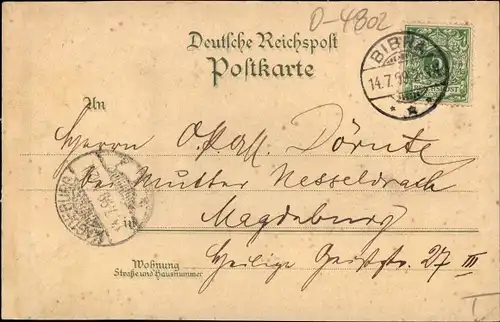 D-4802
Deutsche Reichspost
Postkarte
BIBRA
14.7.99
An
Herrn O. Dörnte
bei Mutter Nesseldrach
in
Magdeburg
Wohnung
Straße und Hausnummer
Heilige Geiststr. 27 III
MAGDEBURG